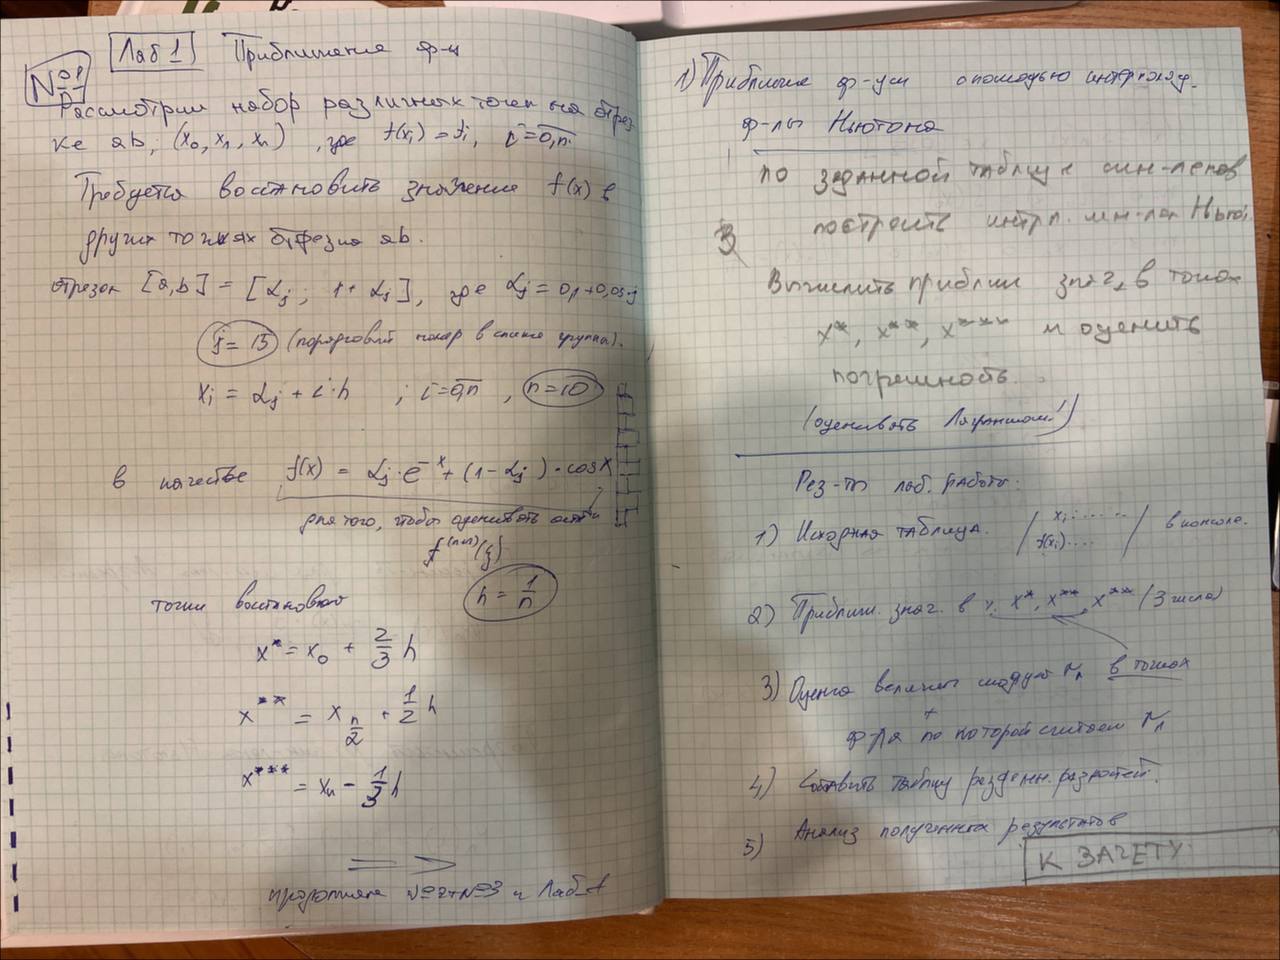 Лаб 1 Приближение ф-и
N
Рассмотрим набор различных точек на отрез-
ке ab, (x₀, x₁, xₙ), где f(xᵢ) = fᵢ, i = 0,n.
Требуется востановить значение f(x) в
других точках отрезка ab.
отрезок [a,b] = [αⱼ; 1+αⱼ], где αⱼ = 0,1+0,05·j
j = 13 (порядковый номер в списке группы).
xᵢ = αⱼ + i·h ; i = 0,n, n = 10
в качестве f(x) = αⱼ·e⁻ˣ + (1-αⱼ)·cosx
для того, чтобы оценивать
f⁽ⁿ⁺¹⁾(ξ)
h = 1/n
точки
x* = x₀ + 2/3 h
x** = x n/2 + 1/2 h
x*** = xₙ - 1/3 h
=>
№2+№3 и Лаб_1
1) ф-и с помощью интерполяц.
ф-лы Ньютона
по заданной таблице
3 построить интрп. мн-лен Ньют.
Вычислить приближ знач, в точках
x*, x**, x*** и оценить
погрешность.
(оценивать Лагранжом!)
Рез-ты лаб. работы:
1) Исходная таблица. | xᵢ...... f(xᵢ).... | в консоле.
2) Приближ. знач. в т. x*, x**, x*** (3 числа)
3) Оценка величины модуля rₙ в точках
+
ф-ла по которой считаем rₙ
4) Составить таблицу разделен. разностей.
5) Анализ полученных результатов
К ЗАЧЕТУ